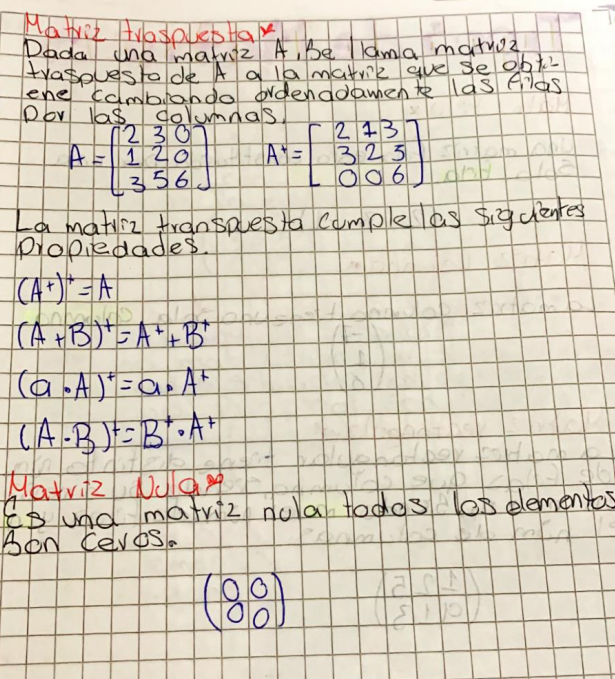 Matriz traspuesta*
Dada una matriz A, se llama matriz
traspuesta de A a la matriz que se obti-
ene cambiando ordenadamente las filas
por las columnas.
A = [2 3 0 A⁺ = [2 1 3
1 2 0 3 2 5
3 5 6] 0 0 6]
La matriz transpuesta cumple las siguientes
propiedades.
(A⁺)⁺ = A
(A + B)⁺ = A⁺ + B⁺
(a • A)⁺ = a • A⁺
(A • B)⁺ = B⁺ • A⁺
Matriz Nula*
Es una matriz nula todos los elementos
son ceros.
(0 0
0 0)